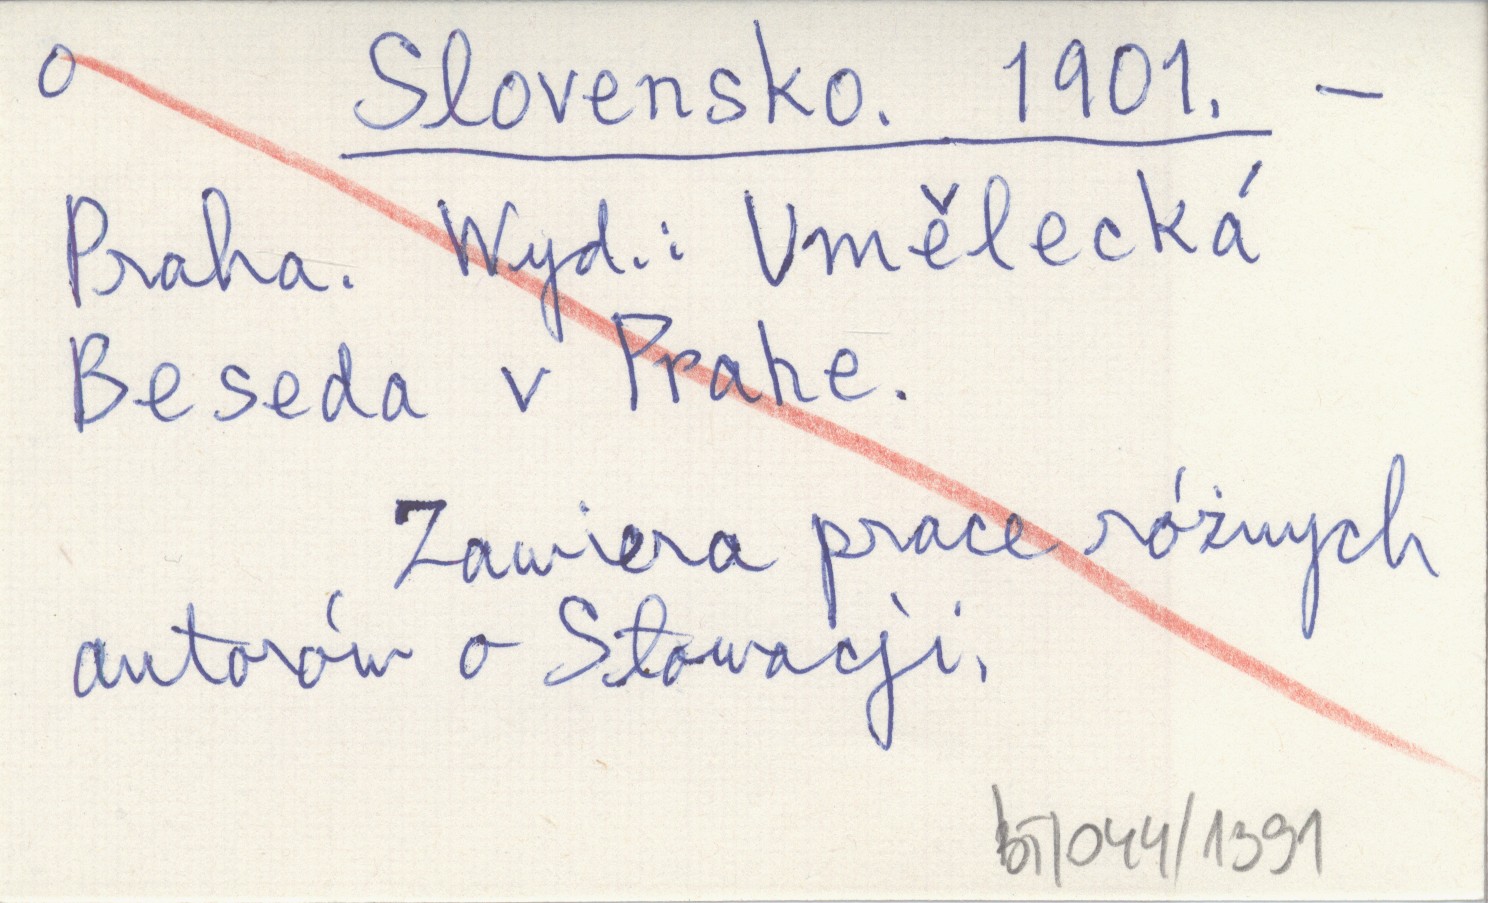 o Slovensko. 1901. —
Praha. Wyd.: Umělecká
Beseda v Prahe.
Zawiera prace różnych
autorów o Słowacji.
/044/1391